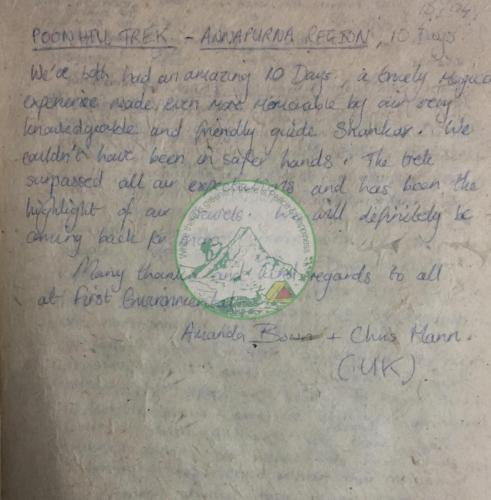 POONHILL TREK - ANNAPURNA REGION, 10 Days
We've both had an amazing 10 Days, a truly magical
experience made even more memorable by our very
knowledgeable and friendly guide Shankar. We
couldn't have been in safer hands. The trek
surpassed all our expectations and has been the
highlight of our travels. We will definitely be
coming back for more
Many thanks and kind regards to all
at First Environmental
Amanda + Chris Mann.
(UK)